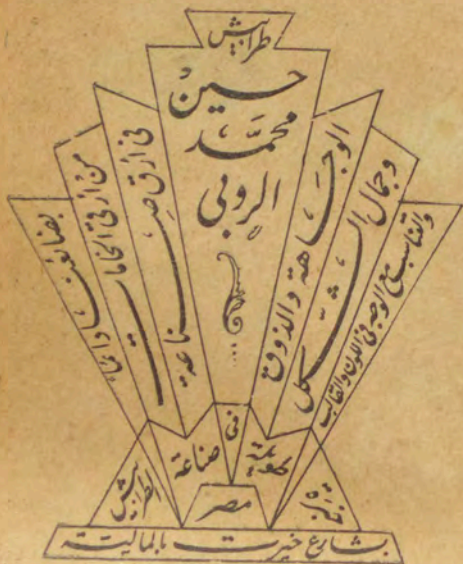 طرابيش
حسين
محمد
الروبى
الوجاهة والذوق
وجمال الشكل
والتناسب مع الوجه فى اللون والقالب
فى أرق صناعة
من أرقى الخامات
فى
صناعة
الطرابيش
مصر
بشارع خيرت بالمالية